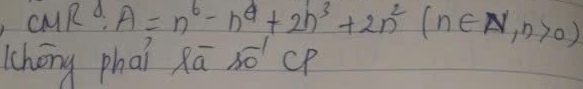 , CMR: A = n⁶ - n⁴ + 2n³ + 2n² (n ∈ N, n>0)
không phải là số CP